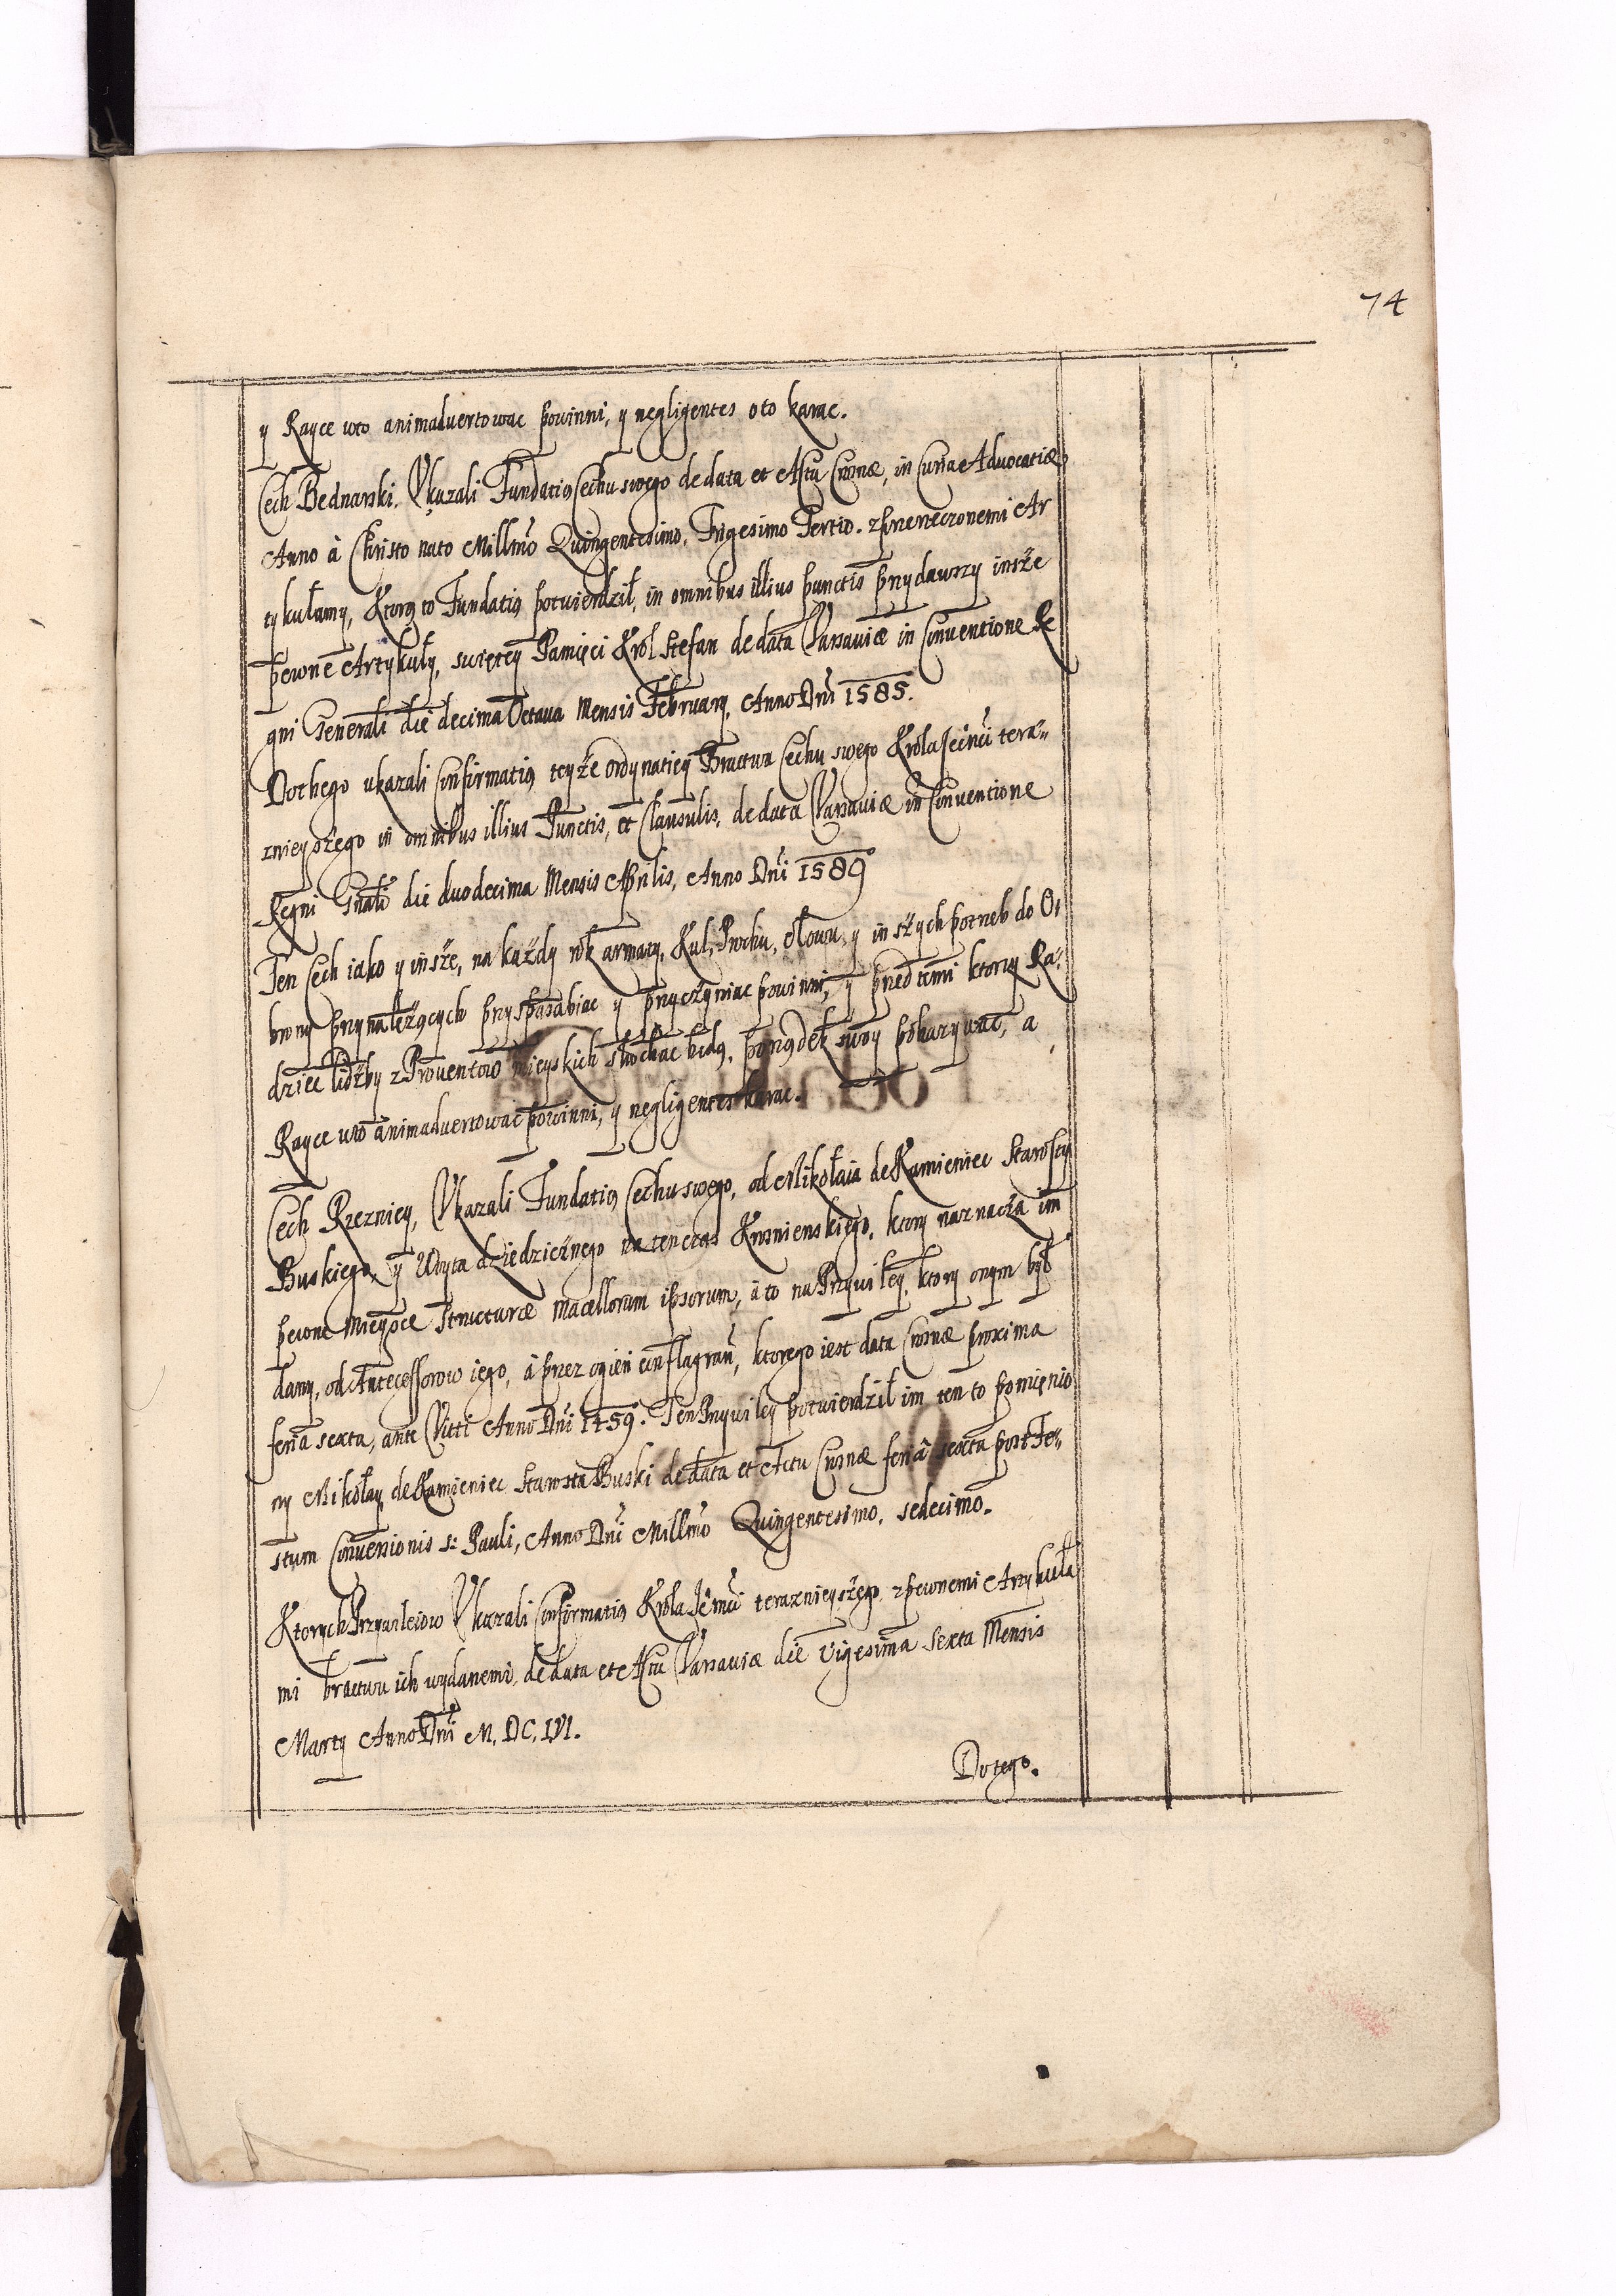 74
y Rayce wto animadvertowac powinni, y negligentes oto karac.
Cech Bednarski. Ukazali Fundatią Cechu swego de data et Actu Crosnæ, in Curia Advocatiæ
Anno à Christo nato Millmo Quingentesimo, Trigesimo Tertio. z Ar
tykułamy, Ktorą to Fundatią potwierdził, in omnibus illius punctis przydawszy insze
pewne Artykuły, swiętey Pamięci Krol Stefan de data Varsaviæ in Conventione Re
gni Generali die decima Octava Mensis February, Anno Dni 1585.
Dothego ukazali Confirmatią teyże ordynatiey Bractwa Cechu swego Krola Jeo mci tera„
znieyszego in omnibus illius Punctis, et Clausulis, de data Varsaviæ in Conventione
Regni Gnali die duodecima Mensis Aprilis, Anno Dni 1589
Ten Cech iako y insze, na każdy rok armaty, Kul, Prochu, Ołowu, y inszych potrzeb do O,
brony przynalężących przysposabiac y przyczyniac powinni, y przed temi ktorzy Ra,
dziec liczby z Proventow mieyskich słuchac będą, porządek swoy pokazywac, a
Rayce wto animadvertowac powinni, y negligentes karac.
Cech Rzeznicy, Ukazali Fundatią Cechu swego, od Mikołaia de Kamieniec Starosty
Buskiego, y Woyta dziedzicznego na tenczas Krosnienskiego, ktory naznacza im
pewne mieysce structuræ macellorum ipsorum, a to na Przywiley, ktory onym był
dany, od Antecessorow iego, à przez ogień conflagrań, ktorego iest data Crosnæ proxima
feria sexta, ante Vitti Anno Dni 1459. Ten Przywiley potwierdził im ten to pomienio
ny Mikołay de Kamieniec Starosta Buski de data et Actu Crosnæ feriâ sexta post Fe„
stum Conversionis s: Pauli, Anno Dni Millmo Quingentesimo, sedecimo.
Ktorych Przywileiow Ukazali Confirmatią Krola Jeo mci teraznieyszego z pewnemi Artykuła
mi bractwu ich wydanemi, de data et Actu Varsaviæ die Vigesima Sexta Mensis
Marty Anno Dni M. DC. IVI.
Dotego.